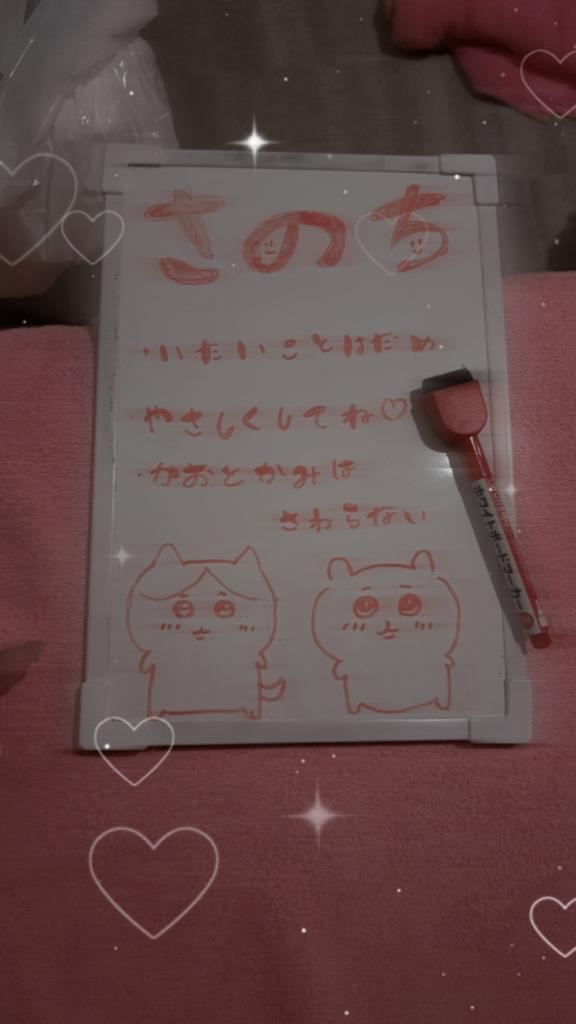 さのち
・いたいことはだめ
・やさしくしてね♡
・かおとかみは
さわらない
ホワイトボードマーカー